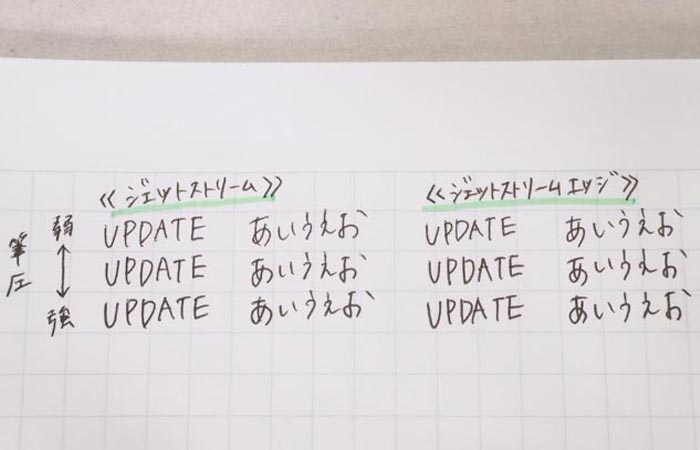 《ジェットストリーム》 《ジェットストリームエッジ》
弱 UPDATE あいうえお UPDATE あいうえお
筆圧 ↕ UPDATE あいうえお UPDATE あいうえお
強 UPDATE あいうえお UPDATE あいうえお